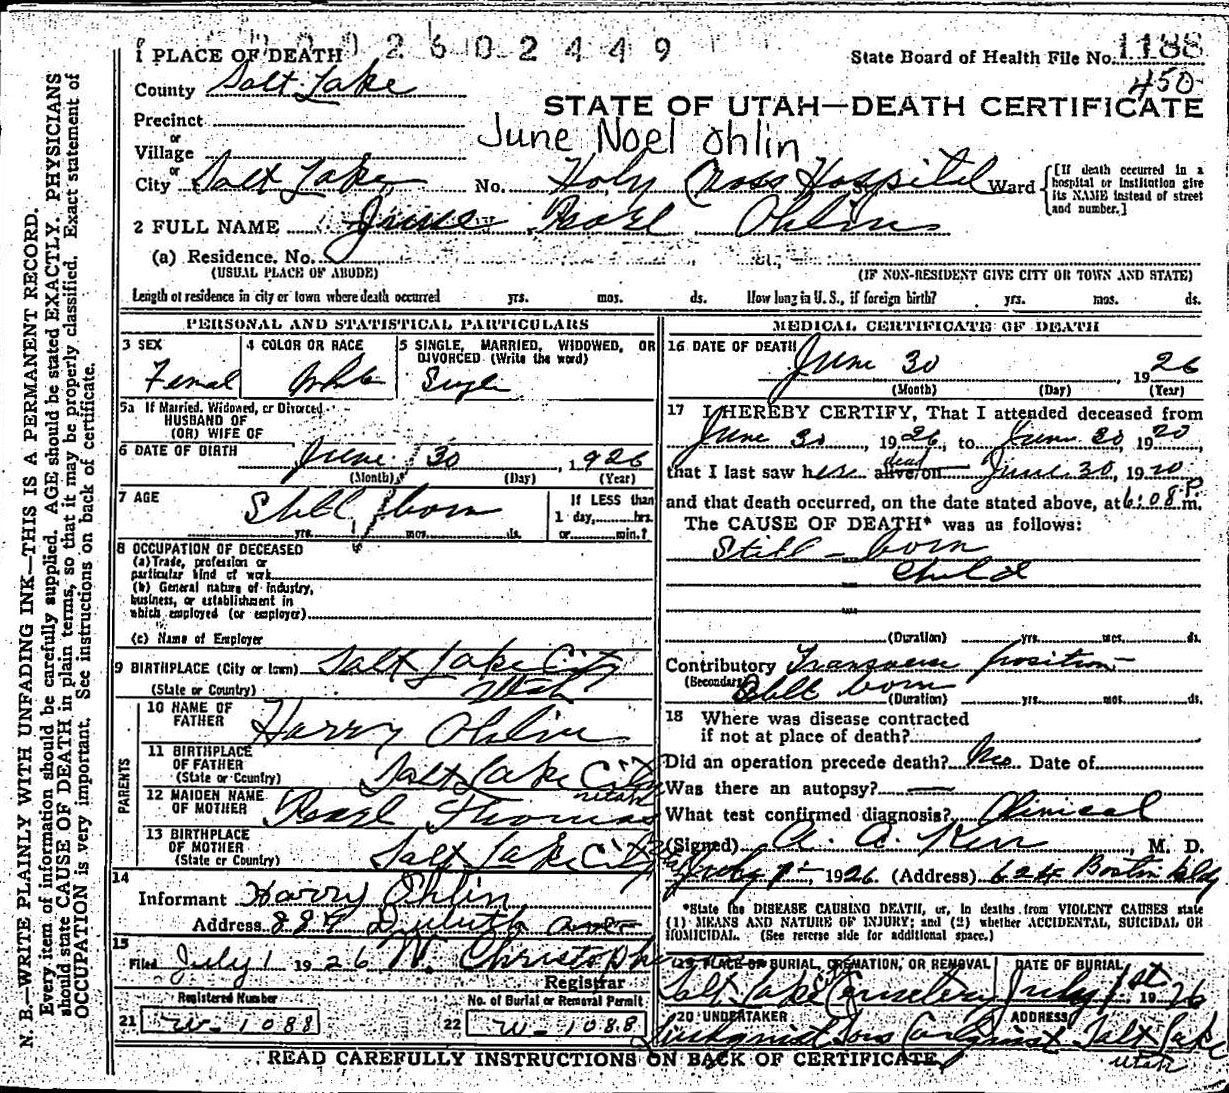 2602449
1 PLACE OF DEATH
State Board of Health File No. 1188
450
County Salt Lake
STATE OF UTAH—DEATH CERTIFICATE
Precinct
or
June Noel Ohlin
Village
or
City Salt Lake No. Holy Cross Hospital Ward
[If death occurred in a hospital or institution give its NAME instead of street and number.]
2 FULL NAME June Pearl Ohlin
(a) Residence. No. St.,
(USUAL PLACE OF ABODE) (IF NON-RESIDENT GIVE CITY OR TOWN AND STATE)
Length of residence in city or town where death occurred yrs. mos. ds. How long in U. S., if foreign birth? yrs. mos. ds.
PERSONAL AND STATISTICAL PARTICULARS
3 SEX
Femal
4 COLOR OR RACE
White
5 SINGLE, MARRIED, WIDOWED, OR
DIVORCED (Write the word)
Single
5a If Married, Widowed, or Divorced
HUSBAND OF
(OR) WIFE OF
6 DATE OF BIRTH June 30, 1926
(Month) (Day) (Year)
7 AGE
Still born
yrs. mos. ds.
If LESS than
1 day, hrs.
or min.?
8 OCCUPATION OF DECEASED
(a) Trade, profession or
particular kind of work
(b) General nature of industry,
business, or establishment in
which employed (or employer)
(c) Name of Employer
9 BIRTHPLACE (City or town) Salt Lake City
(State or Country) Utah
PARENTS
10 NAME OF
FATHER
Harry Ohlin
11 BIRTHPLACE
OF FATHER
(State or Country)
Salt Lake City
Utah
12 MAIDEN NAME
OF MOTHER
Pearl Thomas
13 BIRTHPLACE
OF MOTHER
(State or Country)
Salt Lake City
14
Informant Harry Ohlin
Address 884 Duluth ave
15
Filed July 1 1926 W. Christoph
Registrar
Registered Number
21 W-1088
No. of Burial or Removal Permit
22 W-1088
MEDICAL CERTIFICATE OF DEATH
16 DATE OF DEATH
June 30, 1926
(Month) (Day) (Year)
17 I HEREBY CERTIFY, That I attended deceased from
June 30, 1926, to June 30, 1920
that I last saw her alive on dead June 30, 1920
and that death occurred, on the date stated above, at 6:08 P. m.
The CAUSE OF DEATH* was as follows:
Still-born
Child
(Duration) yrs. mos. ds.
Contributory Transverse position
(Secondary) Still born
(Duration) yrs. mos. ds.
18 Where was disease contracted
if not at place of death?
Did an operation precede death? No Date of
Was there an autopsy? —
What test confirmed diagnosis? Clinical
(Signed) A. A. Kerr, M. D.
July 1-, 1926 (Address) 624 Boston Bldg
*State the DISEASE CAUSING DEATH, or, in deaths from VIOLENT CAUSES state
(1) MEANS AND NATURE OF INJURY; and (2) whether ACCIDENTAL, SUICIDAL OR
HOMICIDAL. (See reverse side for additional space.)
19 PLACE OF BURIAL, CREMATION, OR REMOVAL
Salt Lake Cemetery
DATE OF BURIAL
July 1st 1926
20 UNDERTAKER
Lindquist Sons
ADDRESS
Salt Lake
Utah
READ CAREFULLY INSTRUCTIONS ON BACK OF CERTIFICATE
N. B.—WRITE PLAINLY WITH UNFADING INK—THIS IS A PERMANENT RECORD.
Every item of information should be carefully supplied. AGE should be stated EXACTLY. PHYSICIANS
should state CAUSE OF DEATH in plain terms, so that it may be properly classified. Exact statement of
OCCUPATION is very important. See instructions on back of certificate.